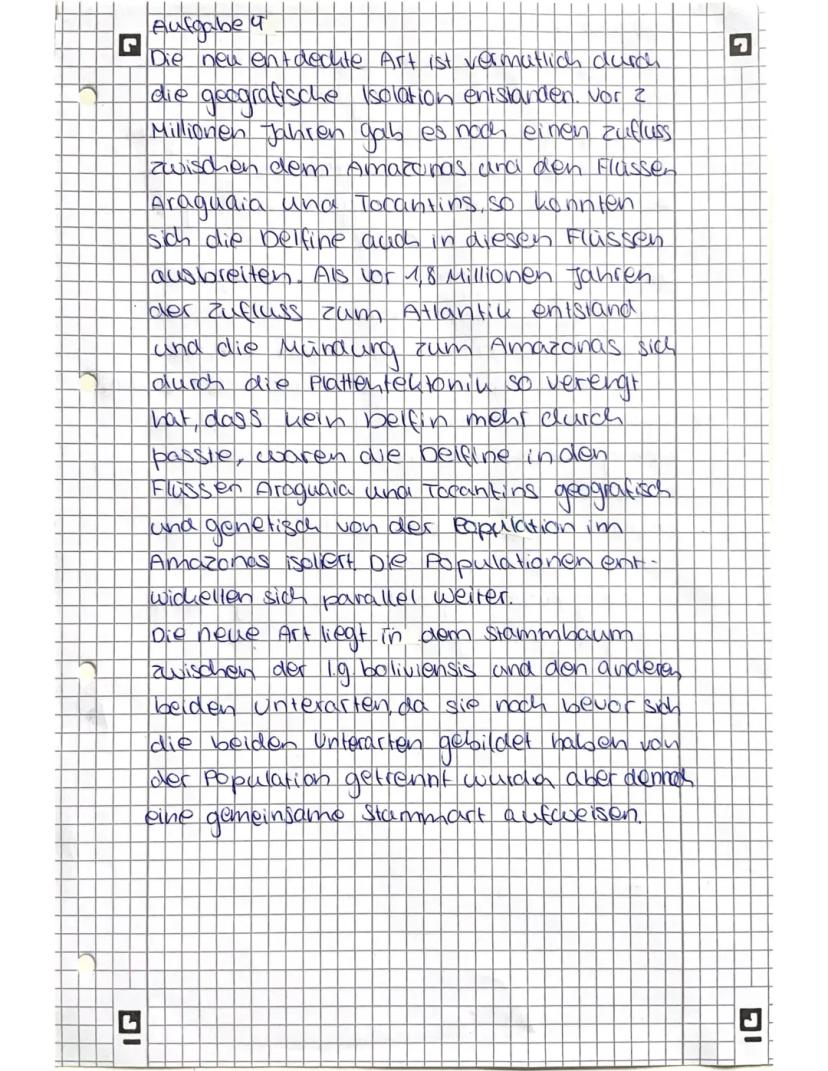 Aufgabe 4
Die neu entdeckte Art ist vermutlich durch
die geografische Isolation entstanden. Vor 2
Millionen Jahren gab es noch einen Zufluss
zwischen dem Amazonas und den Flüssen
Araguaia und Tocantins, so konnten
sich die Delfine auch in diesen Flüssen
ausbreiten. Als vor 1,8 Millionen Jahren
der Zufluss zum Atlantik entstand
und die Mündung zum Amazonas sich
durch die Plattentektonik so verengt
hat, dass kein Delfin mehr durch
passte, waren die Delfine in den
Flüssen Araguaia und Tocantins geografisch
und genetisch von der Population im
Amazonas isoliert. Die Populationen ent-
wickelten sich parallel weiter.
Die neue Art liegt in dem Stammbaum
zwischen der I.g boliviensis und den anderen
beiden Unterarten, da sie noch bevor sich
die beiden Unterarten gebildet haben von
der Population getrennt wurden aber dennoch
eine gemeinsame Stammart aufweisen.